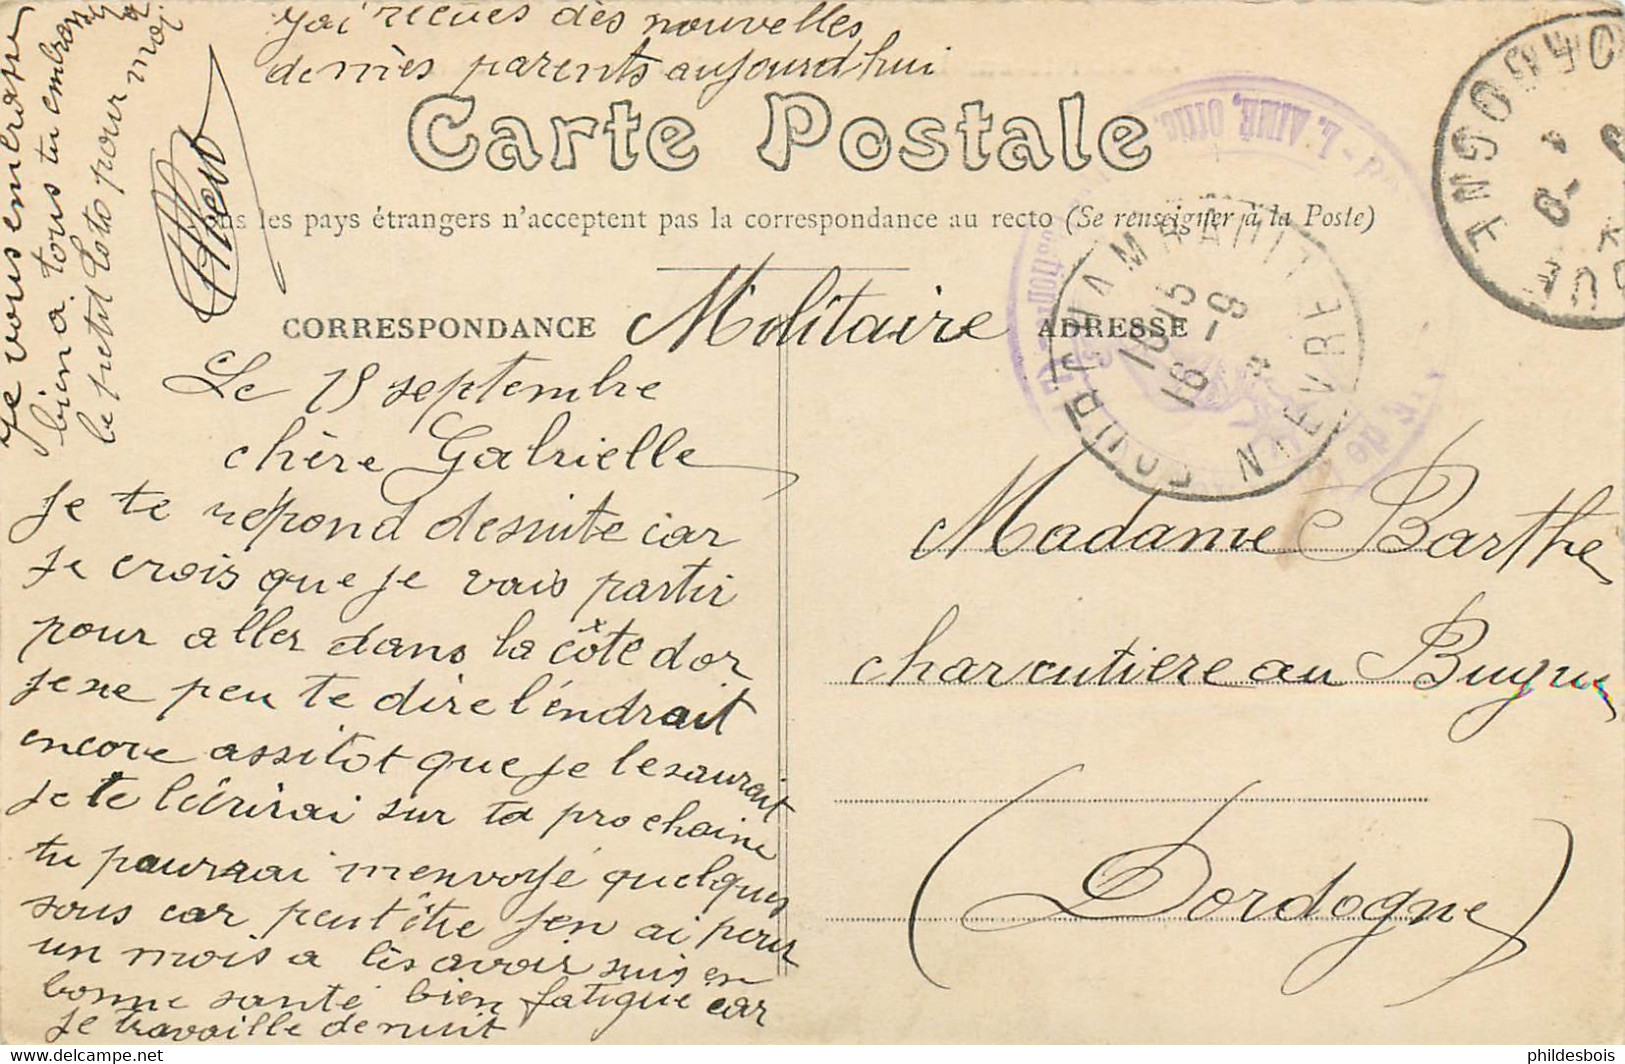 j'ai recues des nouvelles
de mes parents aujourd'hui
Carte Postale
les pays étrangers n'acceptent pas la correspondance au recto (Se renseigner à la Poste)
CORRESPONDANCE
Militaire
ADRESSE
Le 15 septembre
chère Gabrielle
Je te répond desuite car
Je crois que je vais partir
pour aller dans la côte d'or
Je ne peu te dire l'éndrait
encore assitot que je le saurait
Je te lécrirai sur ta prochaine
tu pourrai menvoyé quelques
sous car peut être j'en ai pour
un mois a les avoir suis en
bonne santé bien fatigue car
Je travaille de nuit
Je vous embrasse
bien a tous tu embrasse
le petit Toto pour moi
Albert
Madame Barthe
charcutiere au Bugue
(Dordogne)
L. AIMÉ, OFFIC.
NIEVRE
16 15
16 - 9
DORDOGNE
phildesbois